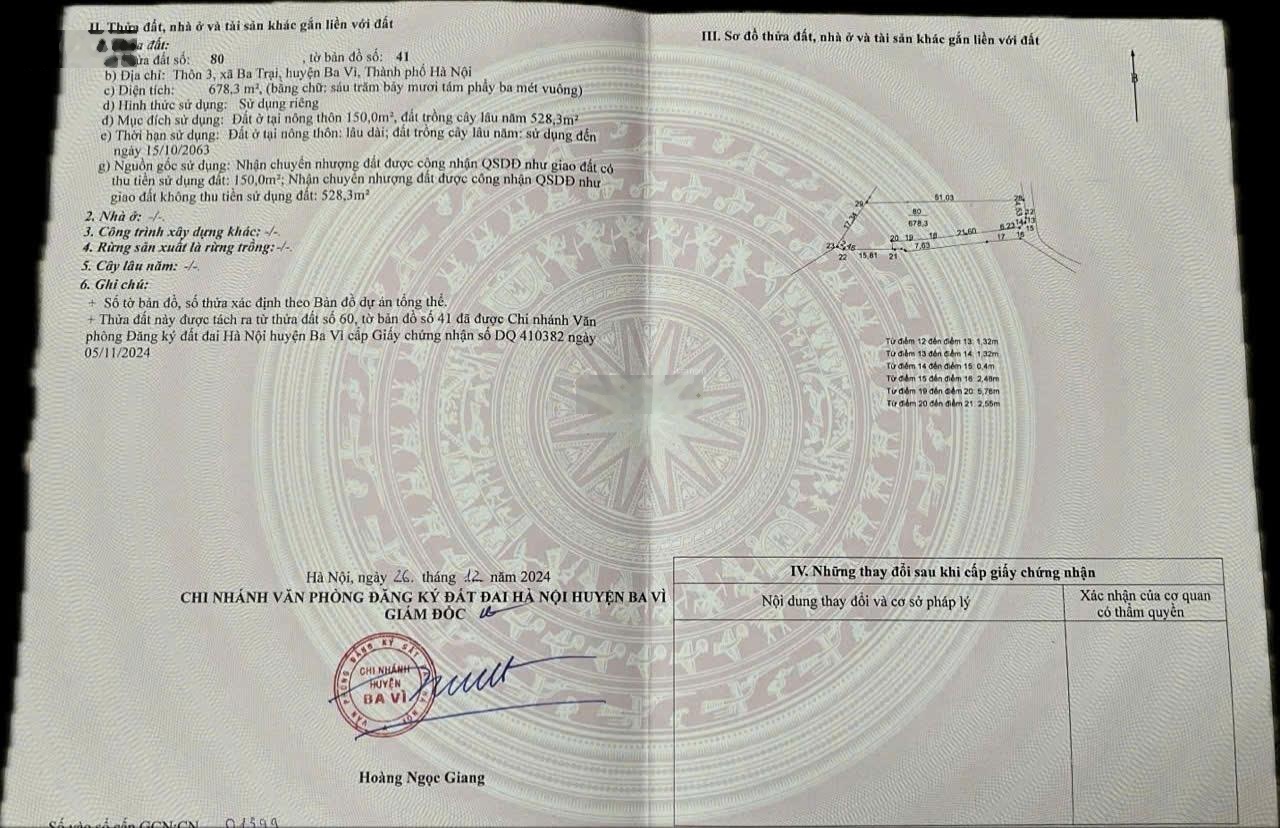 II. Thửa đất, nhà ở và tài sản khác gắn liền với đất
đất:
thửa đất số: 80 , tờ bản đồ số: 41
b) Địa chỉ: Thôn 3, xã Ba Trại, huyện Ba Vì, Thành phố Hà Nội
c) Diện tích: 678,3 m², (bằng chữ: sáu trăm bảy mươi tám phẩy ba mét vuông)
d) Hình thức sử dụng: Sử dụng riêng
đ) Mục đích sử dụng: Đất ở tại nông thôn 150,0m², đất trồng cây lâu năm 528,3m²
e) Thời hạn sử dụng: Đất ở tại nông thôn: lâu dài; đất trồng cây lâu năm: sử dụng đến
ngày 15/10/2063
g) Nguồn gốc sử dụng: Nhận chuyển nhượng đất được công nhận QSDĐ như giao đất có
thu tiền sử dụng đất: 150,0m²; Nhận chuyển nhượng đất được công nhận QSDĐ như
giao đất không thu tiền sử dụng đất: 528,3m²
2. Nhà ở: -/-.
3. Công trình xây dựng khác: -/-.
4. Rừng sản xuất là rừng trồng:-/-.
5. Cây lâu năm: -/-.
6. Ghi chú:
+ Số tờ bản đồ, số thửa xác định theo Bản đồ dự án tổng thể.
+ Thửa đất này được tách ra từ thửa đất số 60, tờ bản đồ số 41 đã được Chi nhánh Văn
phòng Đăng ký đất đai Hà Nội huyện Ba Vì cấp Giấy chứng nhận số DQ 410382 ngày
05/11/2024
Hà Nội, ngày 26. tháng 12 năm 2024
CHI NHÁNH VĂN PHÒNG ĐĂNG KÝ ĐẤT ĐAI HÀ NỘI HUYỆN BA VÌ
GIÁM ĐỐC
CHI NHÁNH
HUYỆN
BA VÌ
Hoàng Ngọc Giang
Số vào sổ cấp GCN:CN 01399
III. Sơ đồ thửa đất, nhà ở và tài sản khác gắn liền với đất
B
29 51,03 28
17,34 80 678,3
22
13
14
15
6,23
16
17
21,60
18
19
20
7,63
23
22 15,81 21
Từ điểm 12 đến điểm 13: 1,32m
Từ điểm 13 đến điểm 14: 1,32m
Từ điểm 14 đến điểm 15: 0,4m
Từ điểm 15 đến điểm 16: 2,48m
Từ điểm 19 đến điểm 20: 5,76m
Từ điểm 20 đến điểm 21: 2,55m
IV. Những thay đổi sau khi cấp giấy chứng nhận
Nội dung thay đổi và cơ sở pháp lý
Xác nhận của cơ quan
có thẩm quyền